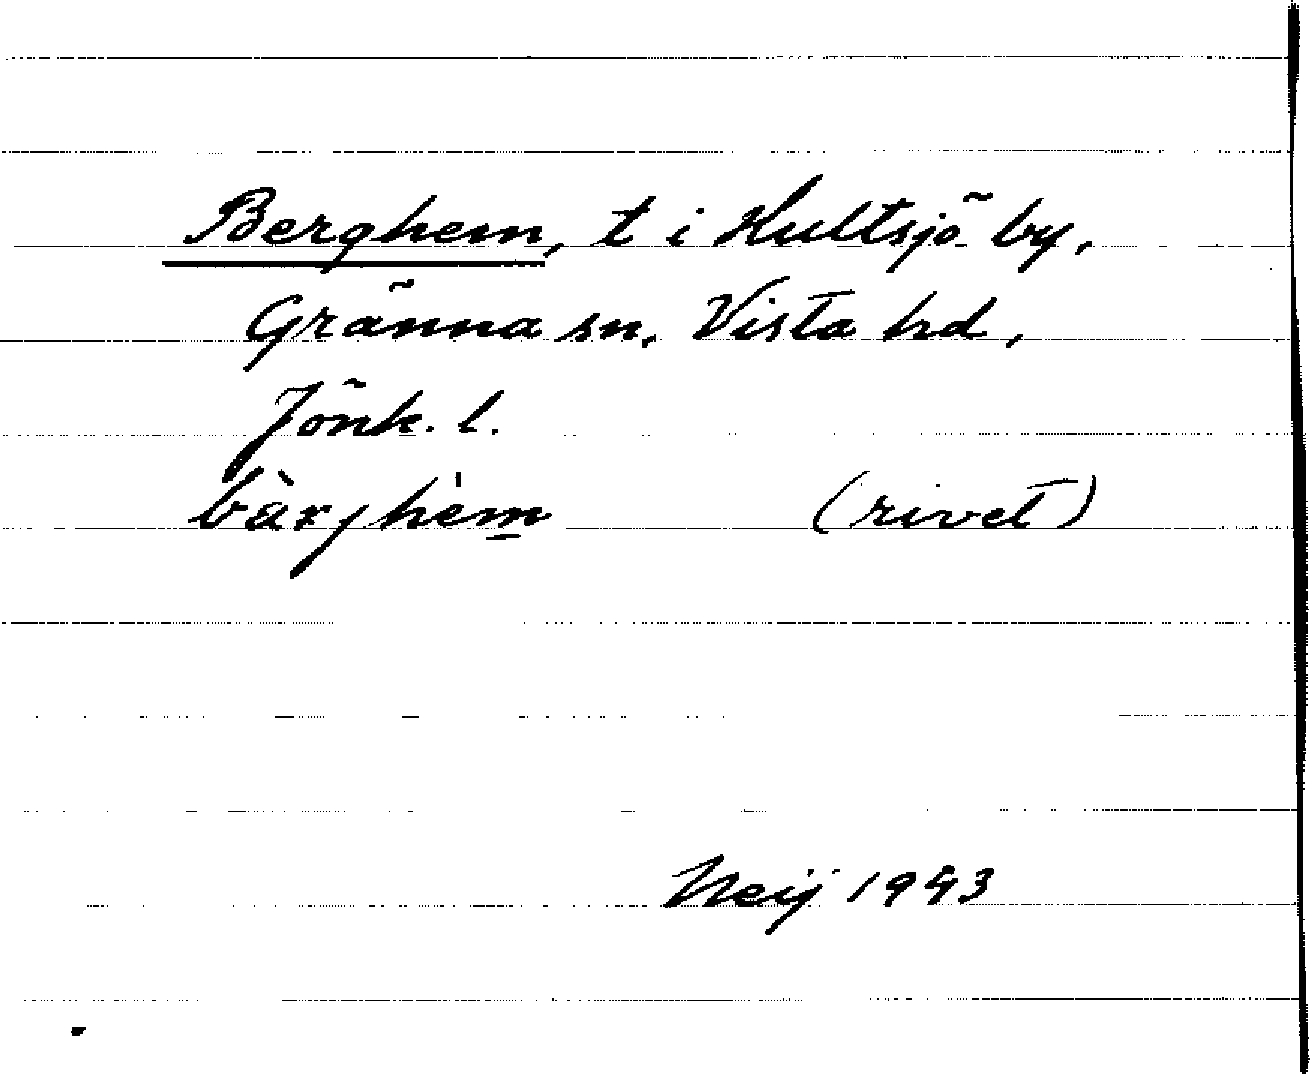 Berghem, t i Hultsjö by,
Gränna sn, Vista hd,
Jönk. l.
bàrjhèm (rivet)
Neij 1943